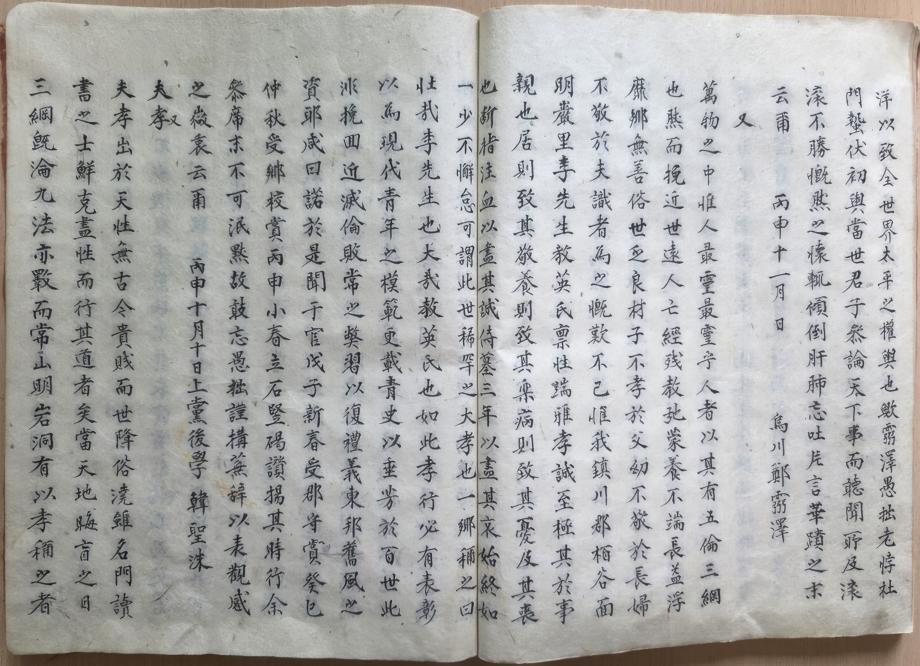 洋以致全世界太平之權輿也歟霧澤愚拙老悖杜
門蟄伏初與當世君子叅論天下事而聽聞所及滾
滾不勝慨然之懷輒傾倒肝肺忘吐片言華蹟之末
云爾 丙申十一月 日 烏川鄭霧澤
又
萬物之中惟人最靈最靈乎人者以其有五倫三綱
也然而挽近世遠人亡經殘教弛蒙養不端長益浮
靡鄉無善俗世乏良材子不孝於父幼不敬於長婦
不敬於夫識者為之慨歎不已惟我鎮川郡栢谷面
明巖里李先生教英氏稟性端雅孝誠至極其於事
親也居則致其敬養則致其樂病則致其憂及其喪
也斷指注血以盡其誠侍墓三年以盡其哀始終如
一少不懈怠可謂此世稀罕之大孝也一鄉稱之曰
壯哉李先生也大哉教英氏也如此孝行必有表彰
以為現代青年之模範更載青史以垂芳於百世此
非挽回近滅倫敗常之弊習以復禮義東邦舊風之
資耶咸曰諾於是聞于官戊子新春受郡守賞癸巳
仲秋受鄉校賞丙申小春立石竪碣讚揚其時行余
叅席末不可泯默故敢忘愚拙謹搆蕪辭以表觀感
之微衷云爾 丙申十月十日上黨後學 韓聖洙
又
夫孝
夫孝出於天性無古今貴賤而世降俗澆雖名門讀
書之士鮮克盡性而行其道者矣當天地晦盲之日
三綱旣淪九法亦斁而常山明岩洞有以孝稱之者